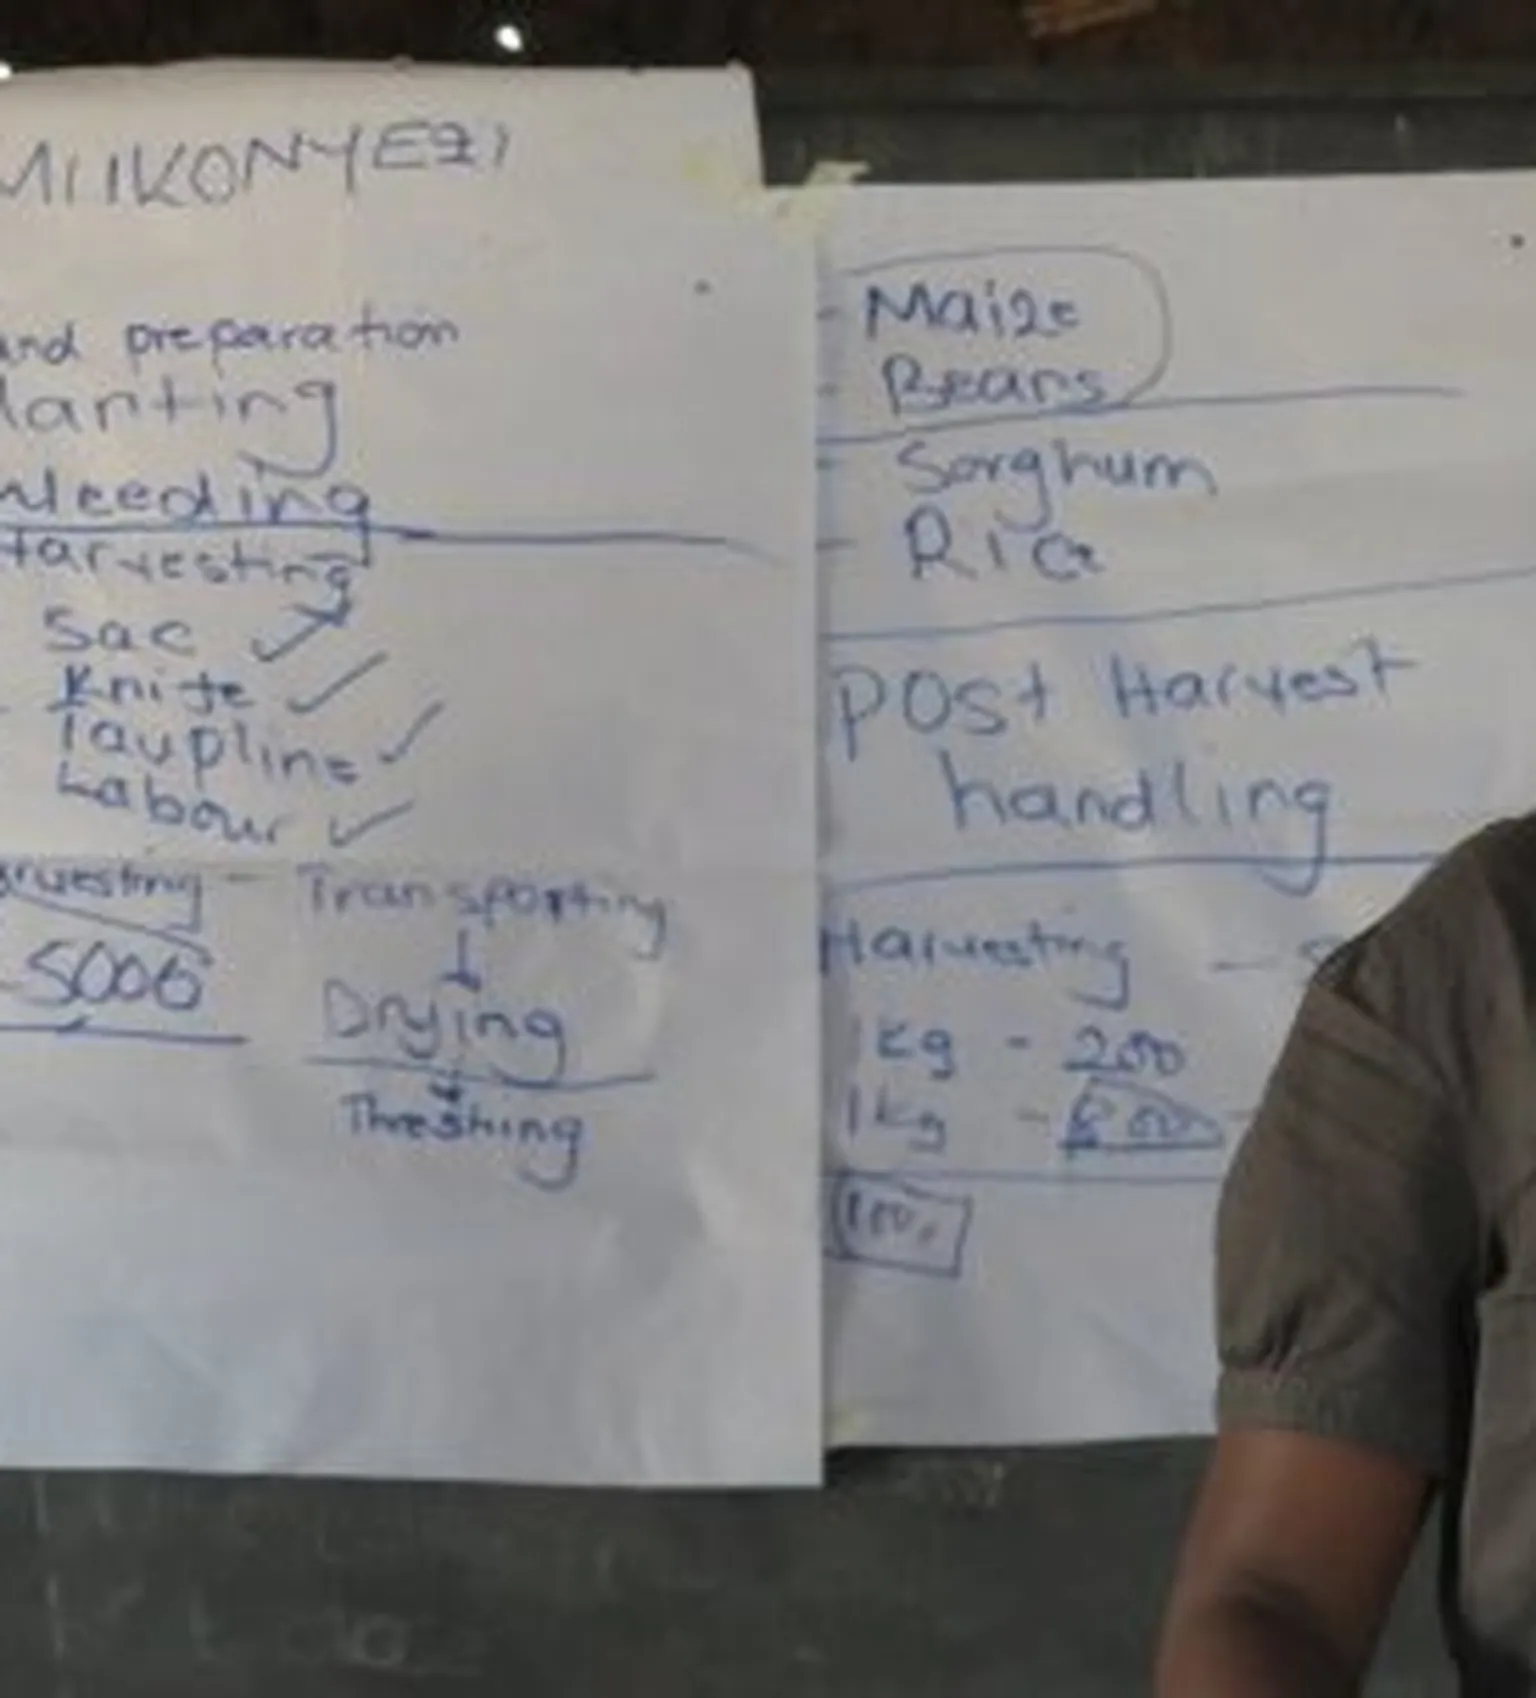 MIIKONYEZI
and preparation
lanting
Weeding
Harvesting
Sac
Knife
Taupline
Labour
arvesting - Transporting
Drying
Threshing
- Maize
- Beans
- Sorghum
- Rice
Post Harvest
handling
Harvesting -
1kg - 200
1kg -